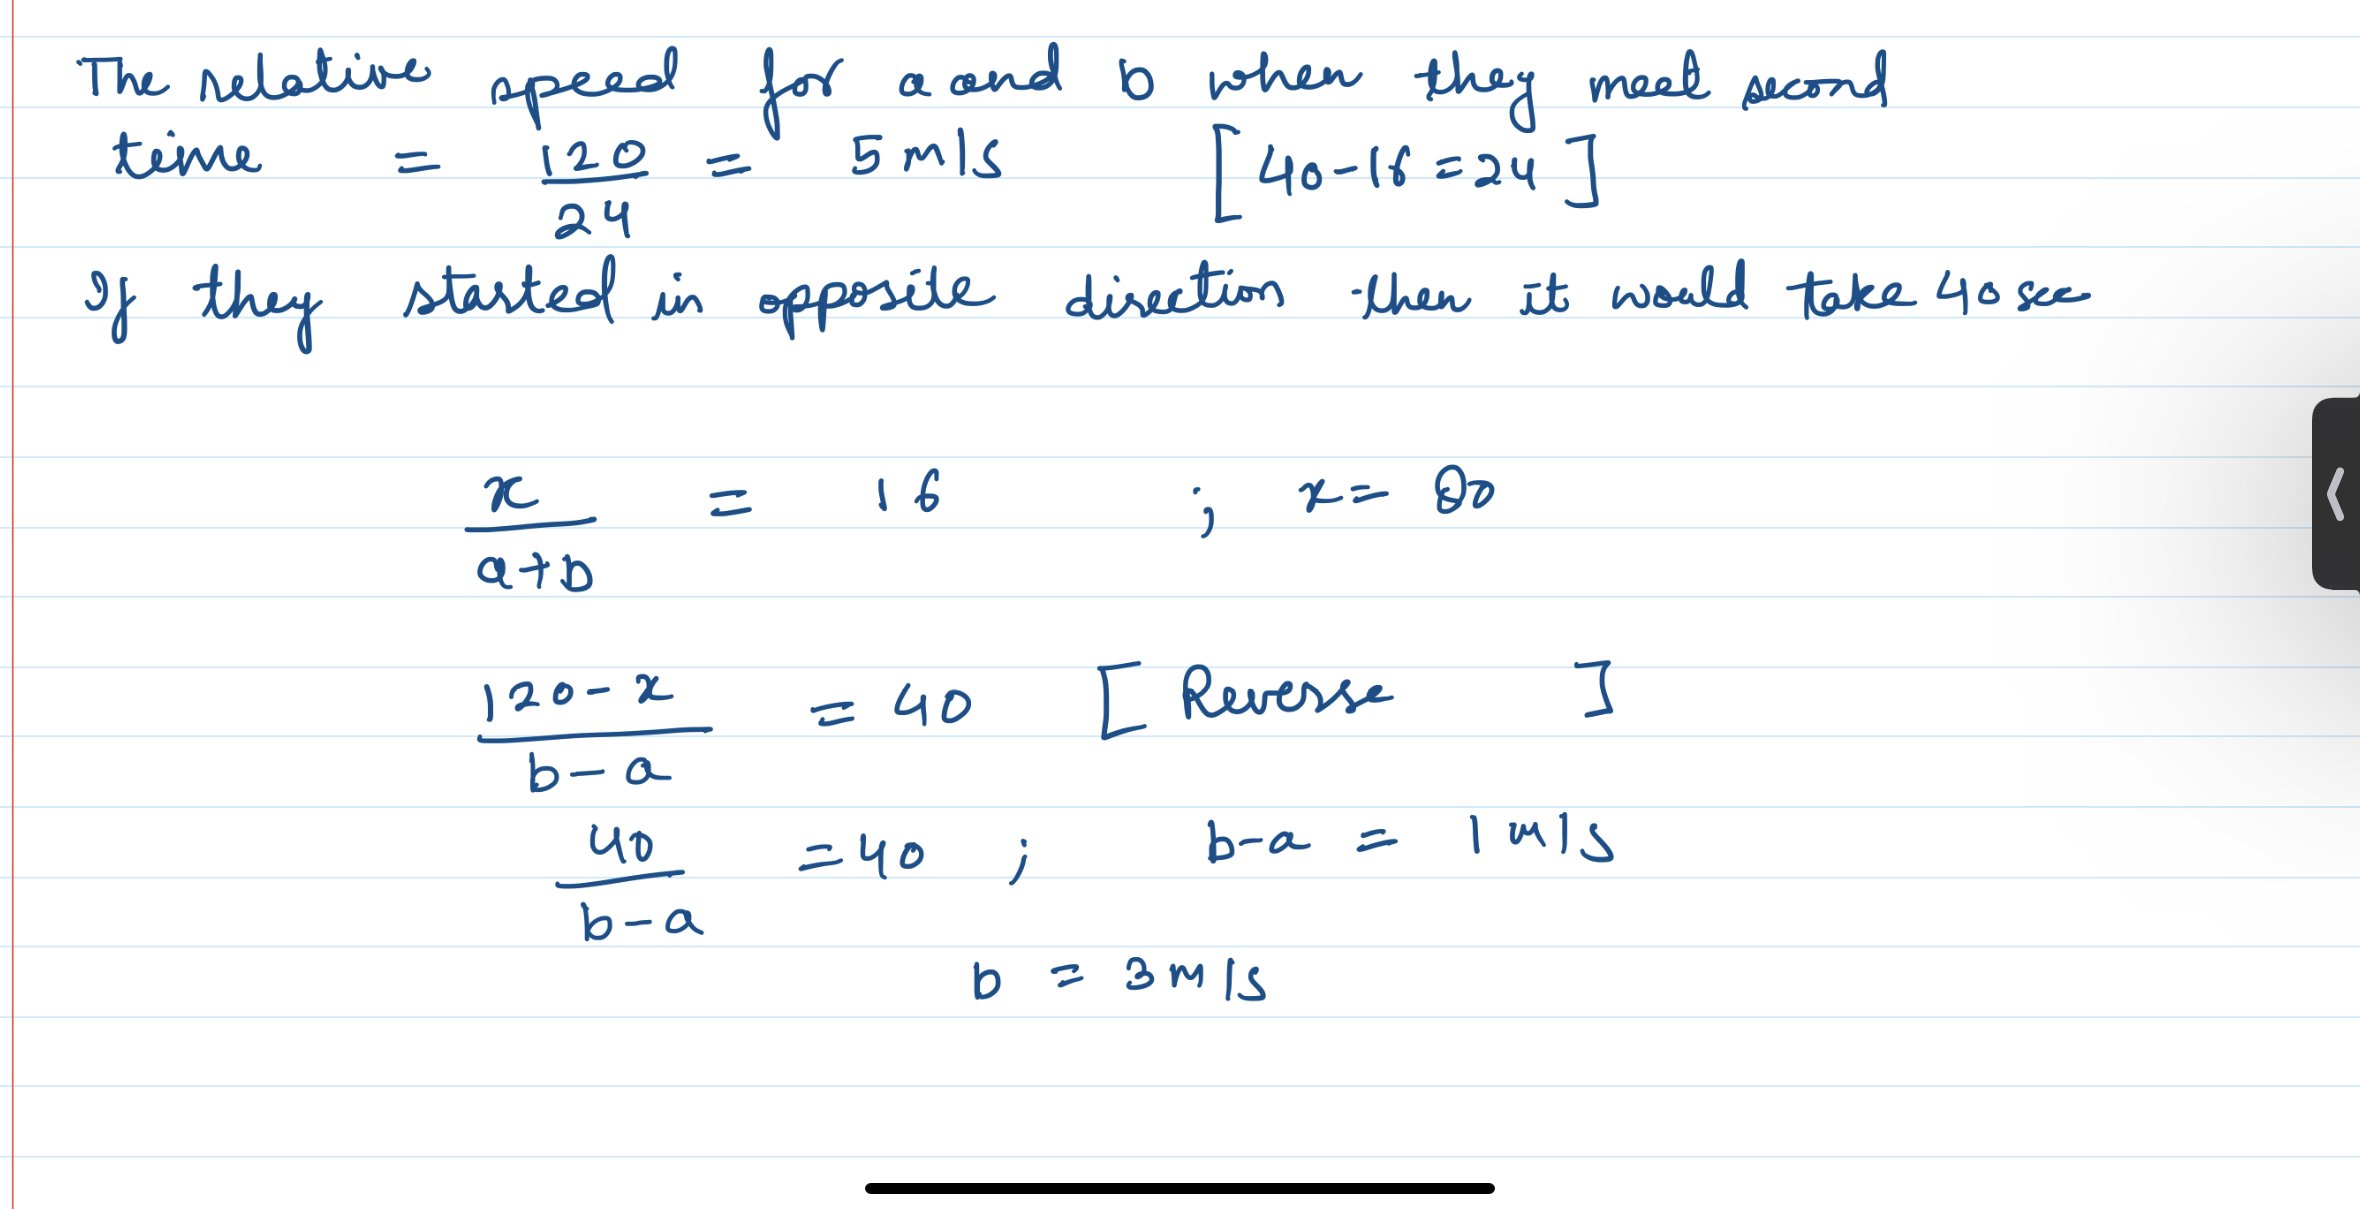 The relative speed for a and b when they meet second
time = 120/24 = 5 m/s [40-16=24]
If they started in opposite direction then it would take 40 sec
x/(a+b) = 16 ; x = 80
(120-x)/(b-a) = 40 [Reverse ]
40/(b-a) = 40 ; b-a = 1 m/s
b = 3 m/s